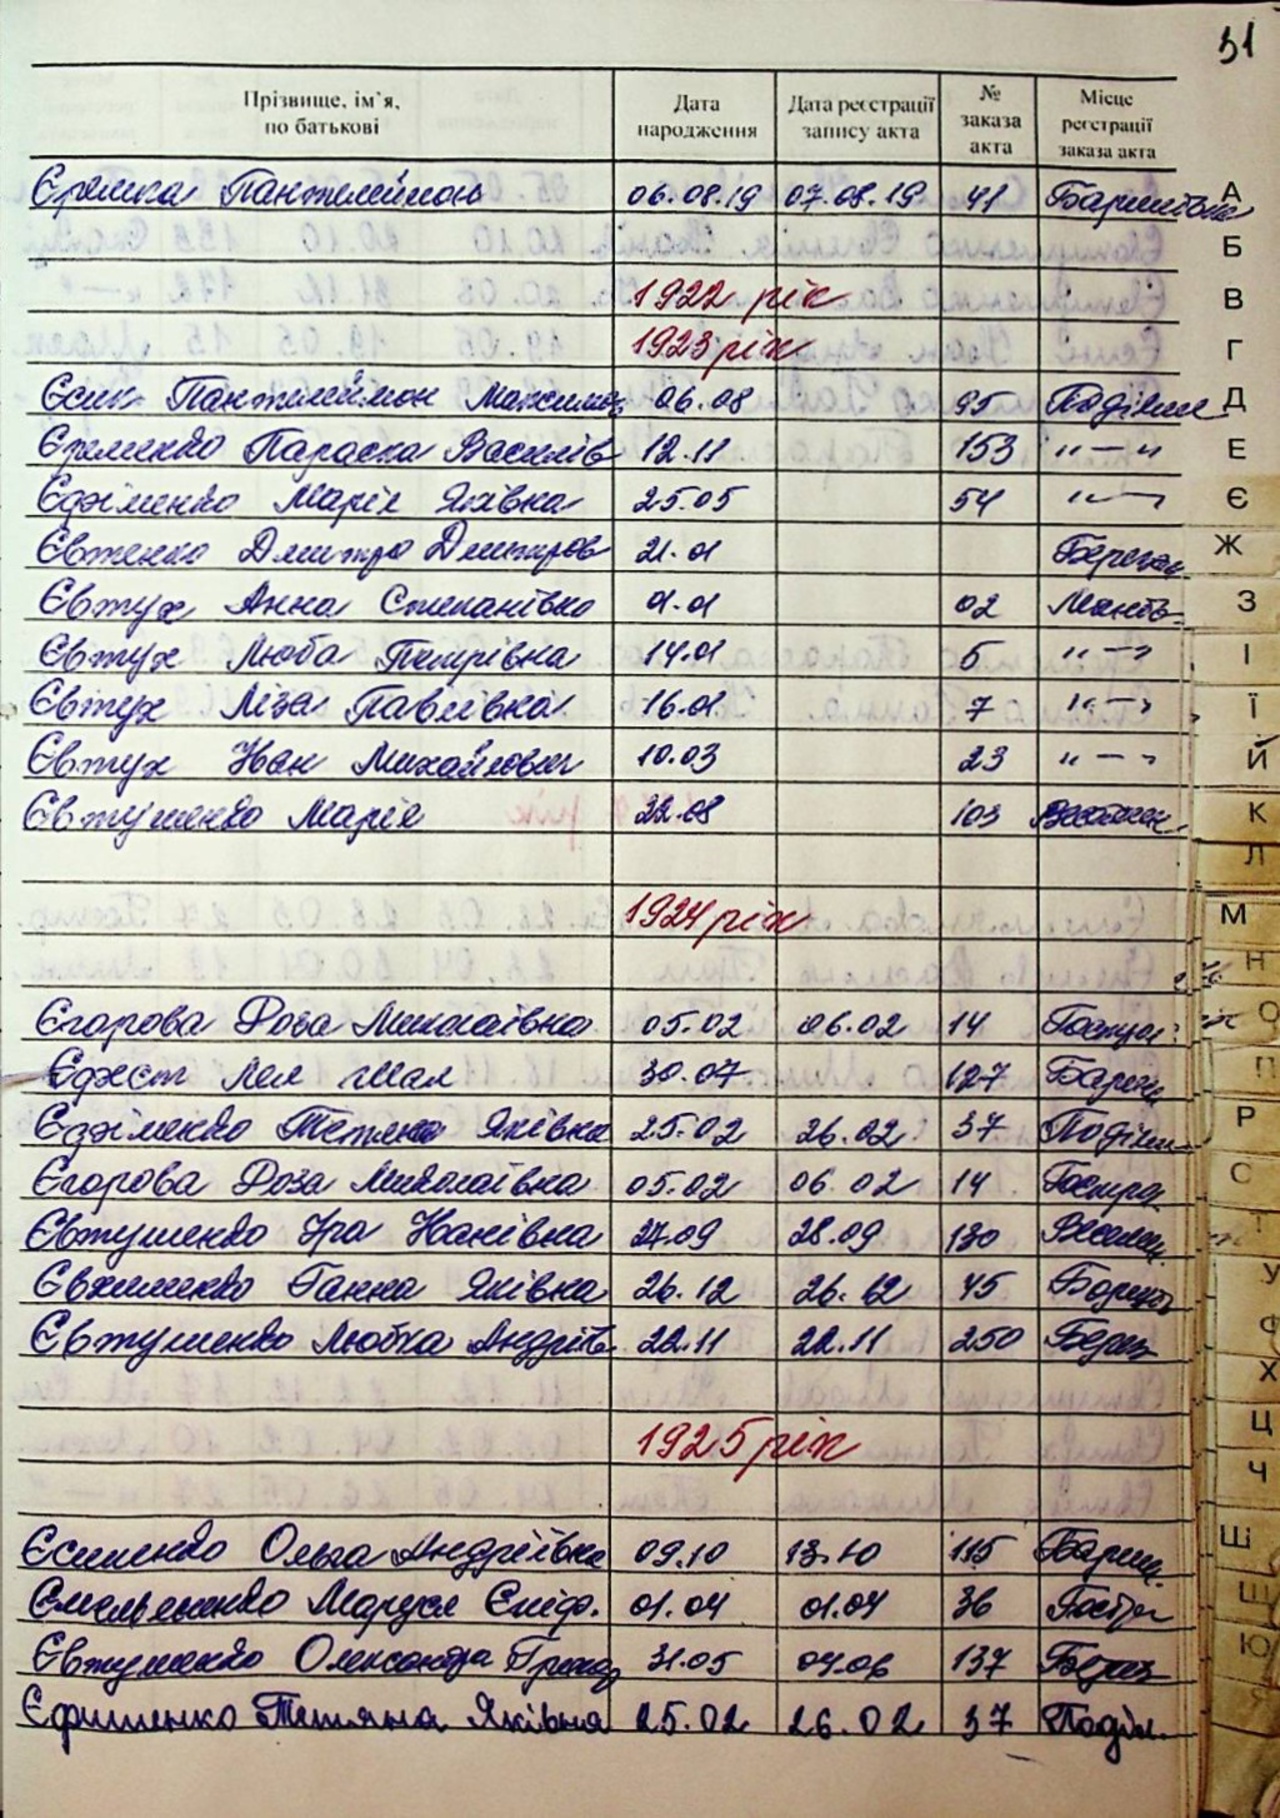 31
Прізвище, ім'я, по батькові Дата народження Дата реєстрації запису акта № заказа акта Місце реєстрації заказа акта
Єремка Пантелеймон 06.08.19 07.08.19 41 Баришівка
1922 рік
1923 рік
Єсип Пантелеймон Максимов 06.08 95 Поділля
Єременко Параска Василів 12.11 153 "—"
Єфіменко Марія Яківна 25.05 54 "—"
Євтенко Дмитро Дмитров 21.01
Євтух Анна Степанівна 01.01 02
Євтух Люба Петрівна 14.01 6 "—"
Євтух Ліза Павлівна 16.01 7 "—"
Євтух Іван Михайлович 10.03 23 "—"
Євтушенко Марія 22.08 103
1924 рік
Єгорова Роза Миколаївна 05.02 06.02 14
Лея 30.07 127
Єфіменко Тетяна Яківна 25.02 26.02 37
Єгорова Роза Миколаївна 05.02 06.02 14
Євтушенко Іра Іванівна 27.09 28.09 130
Ганна Яківна 26.12 26.12 45
Євтушенко Любка Андріїв 22.11 22.11 250 Берез
1925 рік
Ольга Андріївна 09.10 13.10 115
Маруся Єпіф. 01.04 01.04 36
Євтушенко Олександра Григор 31.05 04.06 137 Берез
Єфименко Тетяна Яківна 25.02 26.02 37 Поділ.
А
Б
В
Г
Д
Е
Є
Ж
З
І
Ї
Й
К
Л
М
Н
О
П
Р
С
Т
У
Ф
Х
Ц
Ч
Ш
Щ
Ю
Я